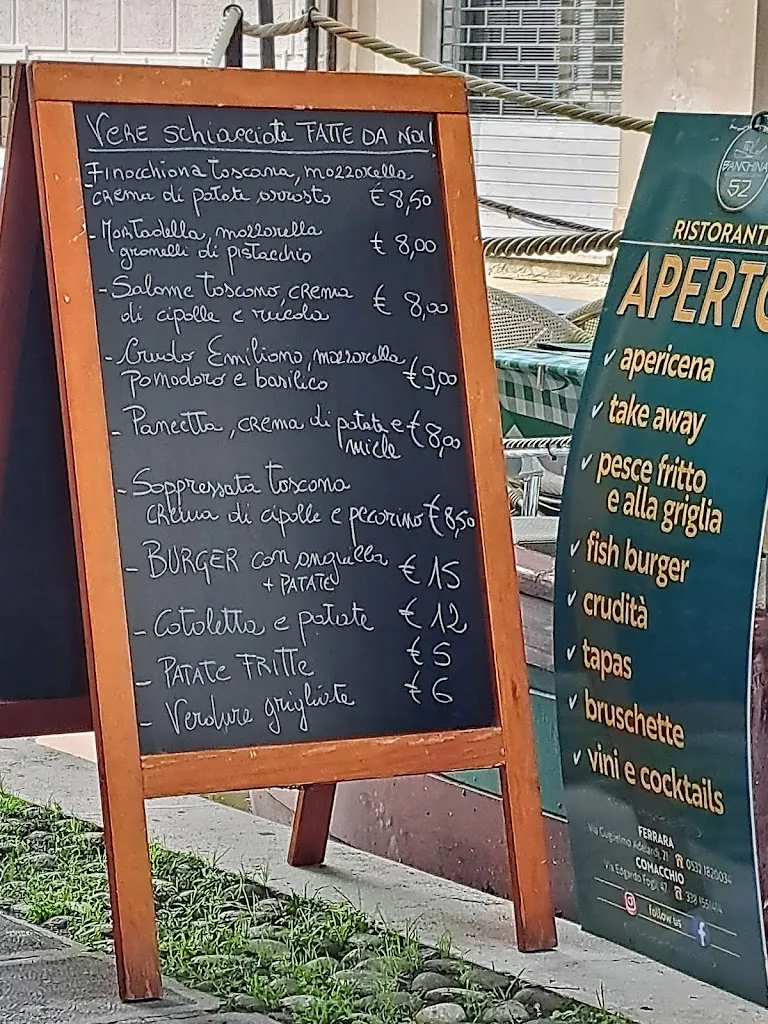 VERE schiacciate FATTE DA NOI!
- Finocchiona toscana, mozzarella
crema di patate arrosto € 8,50
- Mortadella, mozzarella
granelli di pistacchio € 8,00
- Salame toscano, crema
di cipolle e rucola € 8,00
- Crudo Emiliano, mozzarella
pomodoro e basilico € 9,00
- Pancetta, crema di patate e
miele € 8,00
- Soppressata toscana
crema di cipolle e pecorino € 8,50
- BURGER con anguilla
+ PATATE € 15
- Cotoletta e patate € 12
- PATATE FRITTE € 5
- Verdure grigliate € 6
BANCHINA
52
RISTORANT
APERTO
apericena
take away
pesce fritto
e alla griglia
fish burger
crudità
tapas
bruschette
vini e cocktails
FERRARA
Via Guglielmo Adelardi, 21 0532 1820034
COMACCHIO
Via Edgardo Fogli, 47 338
follow us